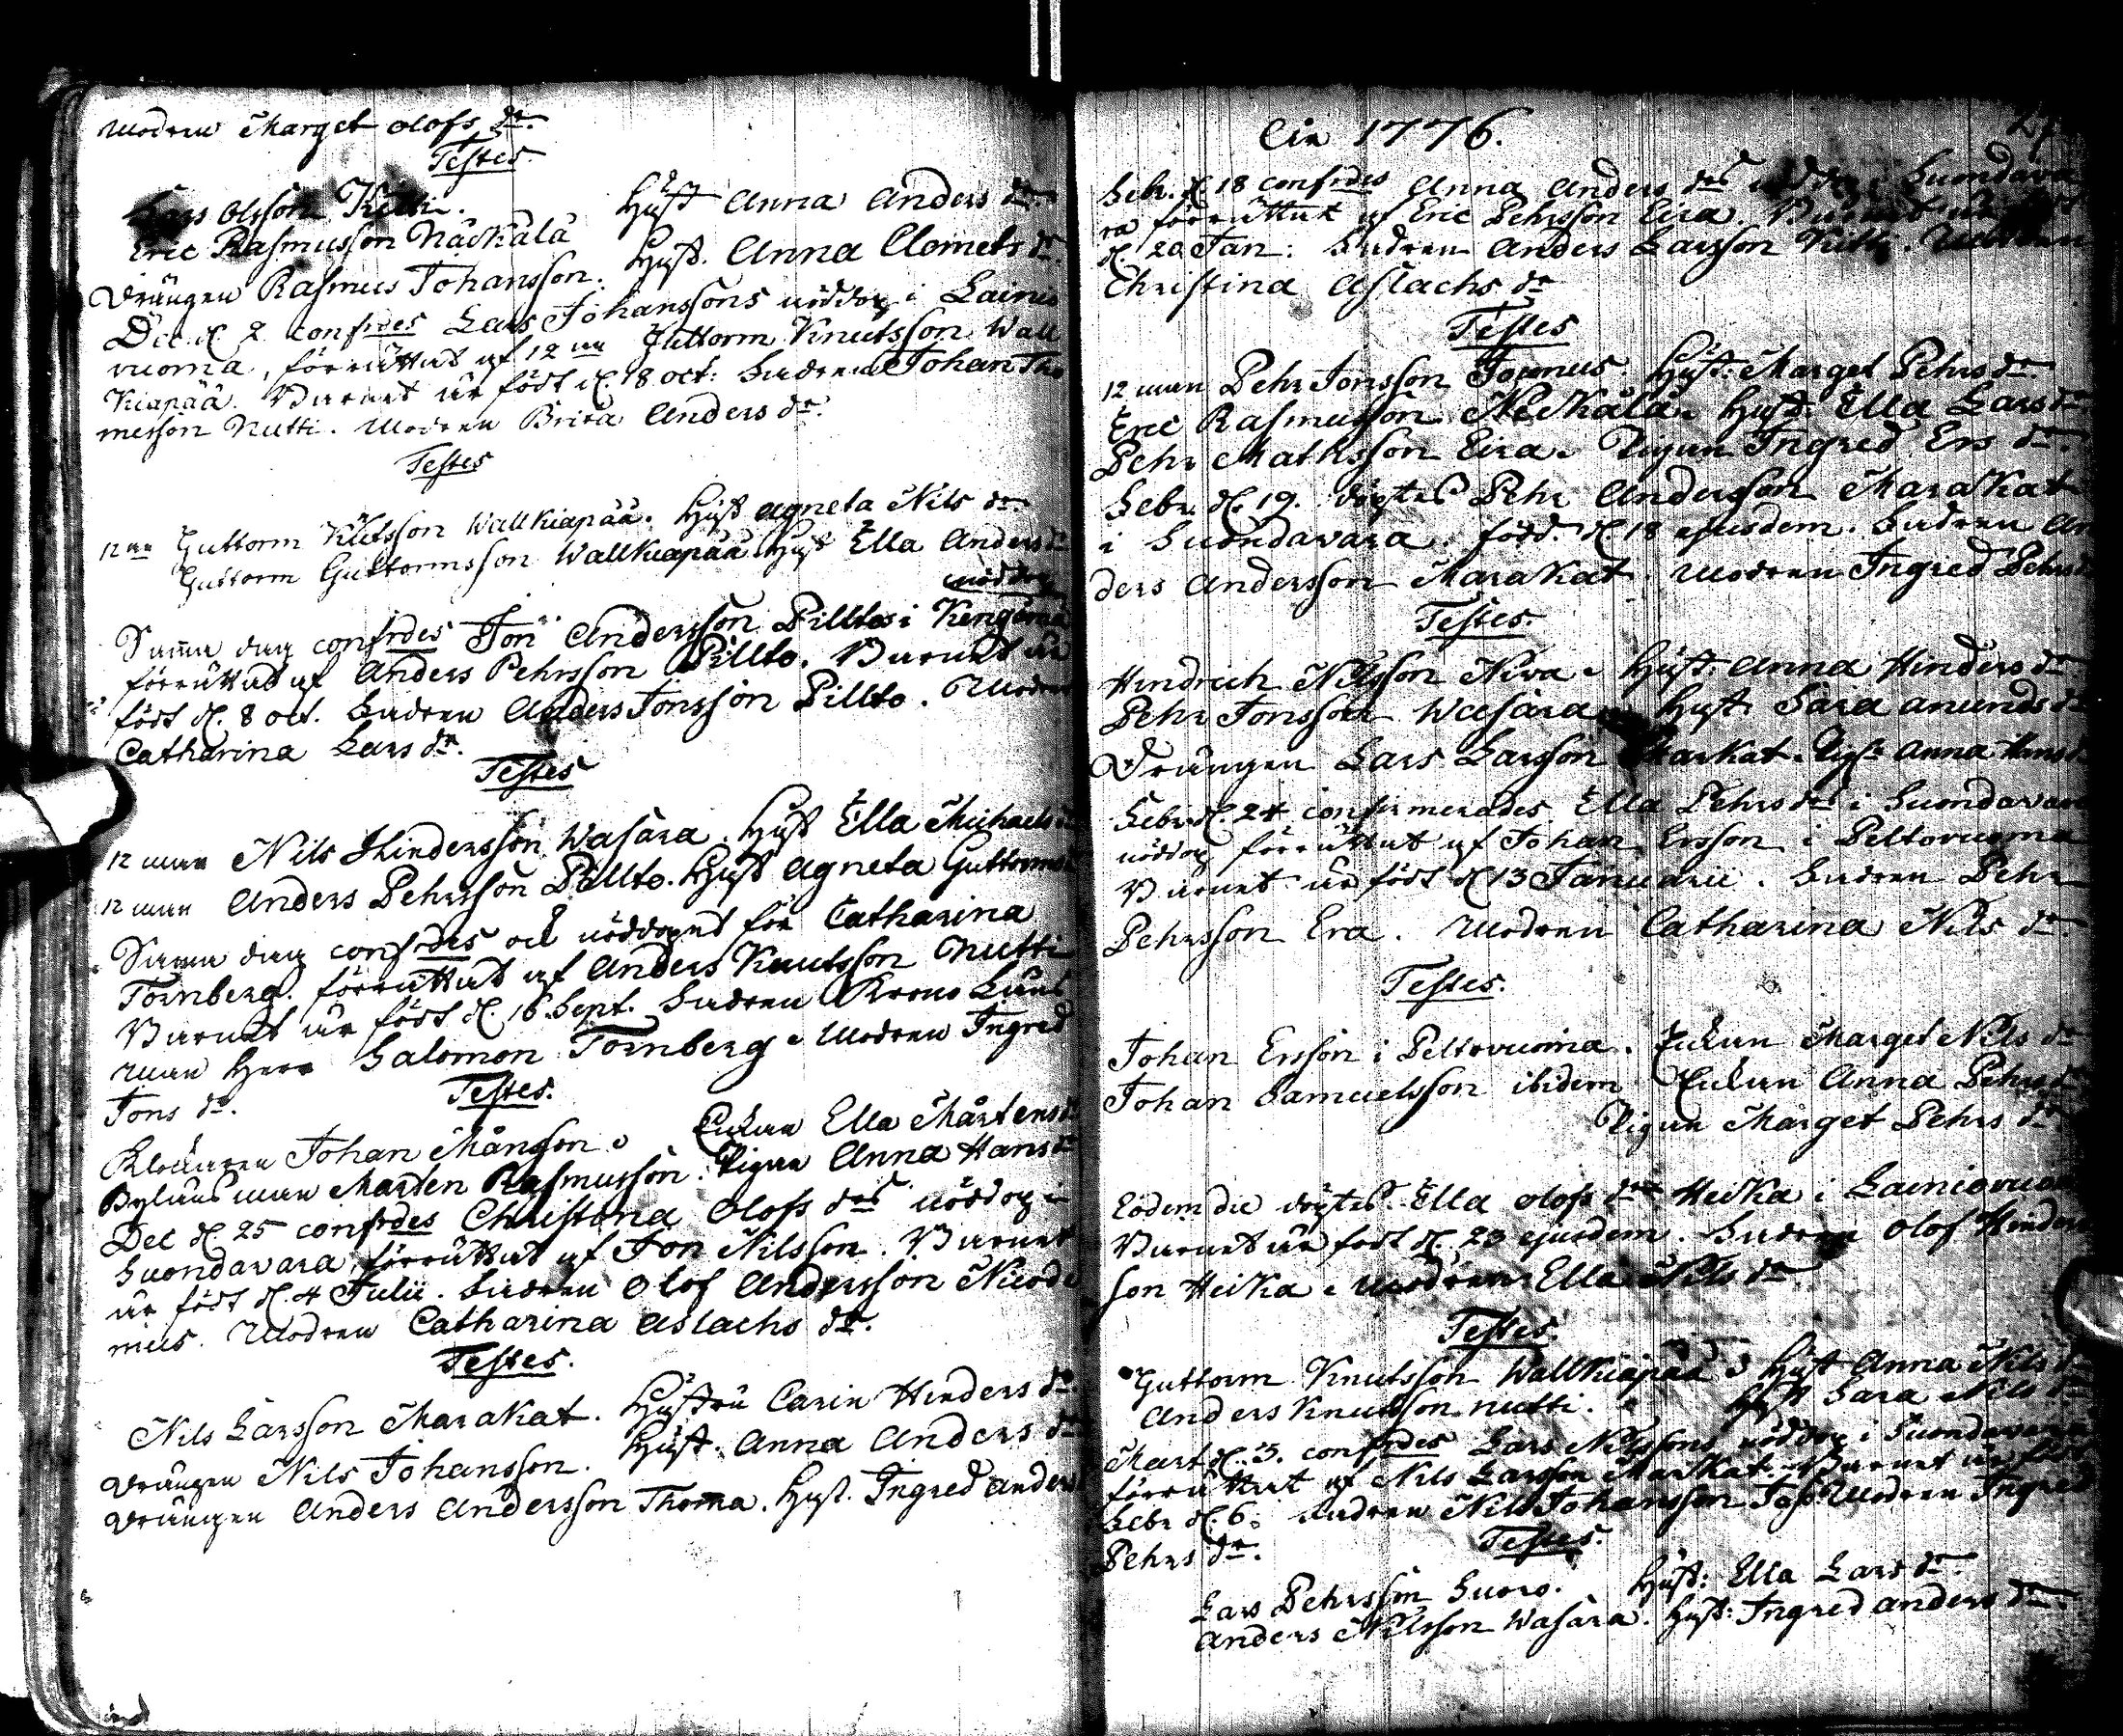 Modren Marget Olofs dr.
Testes
Lars Olsson Kitti. Hust Anna Anders dr.
Eric Rasmusson Näckälä Hust. Anna Clomets dr.
Drängen Rasmus Johansson.
Dec. d. 2 confrdes Lars Johanssons nöddop i Lainio
vuoma, förrättat af 12 mn Guttorm Knutsson Wall
kiapää. Barnet är födt d. 18 oct: Fadren Johan Tho
messon Nutti. Modren Brita Anders dr.
Testes
12 mn Guttorm Knutsson Wallkiapää. Hust Agneta Nils dr.
Guttorm Guttormsson Wallkiapää Hust Ella Anders dr
nöddop
Samma dag confrdes Jon Andersson Pillto i Kengimä
förrättat af Anders Pehrsson Pillto. Barnet är
födt d. 8 oct. Fadren Anders Jonsson Pillto. Modren
Catharina Lars dr.
Testes
12 man Nils Hindersson Wasara. Hust Ella Michaels dr
12 man Anders Pehrsson Pillto. Hust Agneta Guttorms
Samma dag confrdes och nöddopet för Catharina
Törnberg. förrättat af Anders Knutsson Nutti
Barnet är födt d. 16 Sept. Fadren Krono Läns
man Herr Salomon Törnberg. Modren Ingred
Jons dr.
Testes.
Klockaren Johan Månsson. Enkan Ella Mårtens dr
Bylänsman Marten Rasmusson. Pigan Anna Hans dr
Dec d. 25 confrdes Christina Olofs drs nöddop i
Suondavara, förrättat af Jon Nilsson. Barnet
är födt d. 4 Julii. Fadren Olof Andersson Niuodi
mus. Modren Catharina Aslachs dr.
Testes.
Nils Larsson Marakat. Hustru Carin Hinders dr.
Drängen Nils Johansson. Hust. Anna Anders dr
Drängen Anders Andersson Thoma. Hust. Ingred Anders
1776.
Febr. d. 18 confrdes Anna Anders drs nöddop i Suondava
ra förrättat af Eric Pehrsson Eira. Barnet är födt
d. 20 Jan: Fadren Anders Larsson Kitti. Modren
Christina Aslachs dr
Testes
12 man Pehr Jonsson Hust: Marget Pehrs dr.
Eric Rasmusson Neckälä. Hust. Ella Lars dr
Pehr Mathsson Eira. Pigan Ingred Ers dr.
Febr. d. 19. döptes Pehr Andersson Marakat
i Suondavara. född. d. 18 ejusdem. Fadren An
ders Andersson Marakat. Modren Ingred Pehrs dr
Testes.
Hindrich Nilsson Niva. Hust: Anna Hinders dr
Pehr Jonsson Wasara. Hust. Sara Anunds dr
Drängen Lars Larsson Markat. Anna Hans dr
Febr. d. 24 confirmerades Ella Pehrs drs i Suondavara
nöddop förrättat af Johan Ersson i Peltovuoma
Barnet är födt d 13 Januarii. Fadren Pehr
Pehrsson Era. Modren Catharina Nils dr.
Testes.
Johan Ersson i Peltovuoma. Enkan Marget Nils dr
Johan Samuelsson ibidem Enkan Anna Pehrs dr
Pigan Marget Pehrs dr
Eodem die döptes Ella Olofs dr Heika i Lainiovuom
Barnet är födt d. 23 ejusdem. Fadren Olof Hinders
son Heika. Modren Ella Nils dr
Testes.
Guttorm Knutsson Wallkiapää Hust Anna Nils dr
Anders Knutsson Nutti. Hust Sara Nils dr
Mart d. 3. confrdes Lars Nilssons nöddop i Suondavara
förrättat af Nils Larsson Markat. Barnet är födt
Febr d. 6. Fadren Nils Johansson Modren Ingred
Pehrs dr.
Testes.
Lars Pehrsson Suoro. Hust: Ella Lars dr.
Anders Nilsson Wasara. Hust: Ingred Anders dr.